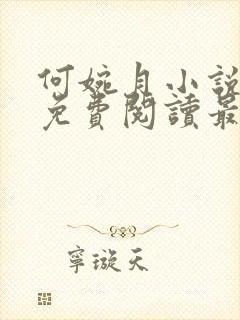 何婉月小說
免費閱讀最
寧璇天